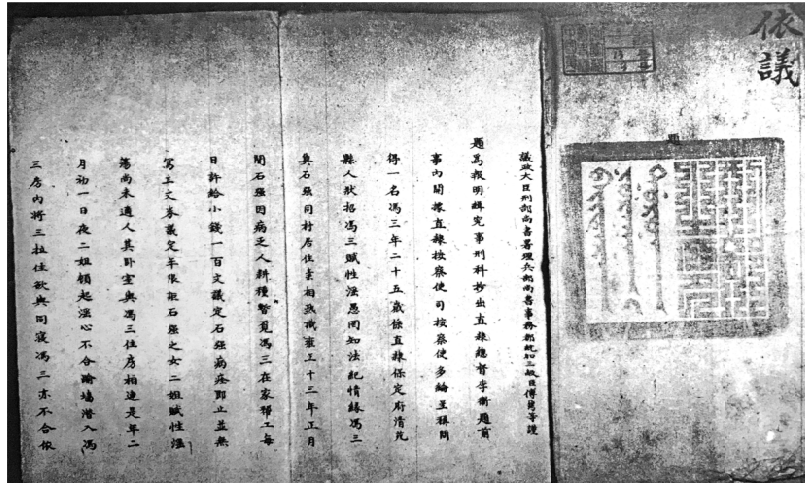 依議
題
議政大臣刑部尚書署理兵部尚書事務
題為報明緝究事刑科抄出直隸總督李衛題前
事內開據直隸按察使司按察使多綸呈稱問
得一名馮三年二十五歲係直隸保定府清苑
縣人狀招馮三賦性淫愚罔知法紀情緣馮三
與石強同村居住素相熟識雍正十三年正月
間石強因病乏人耕種暫覓馮三在家種工每
日許給小錢一百文議定石強病痊即止並無
寫立文券議定年限詎石強之女二姐賦性淫
蕩尚未適人其臥室與馮三住房相連是年二
月初一日夜二姐頓起淫心不合踰墻潛入馮
三房內將三拉住欲與同寢馮三亦不合依